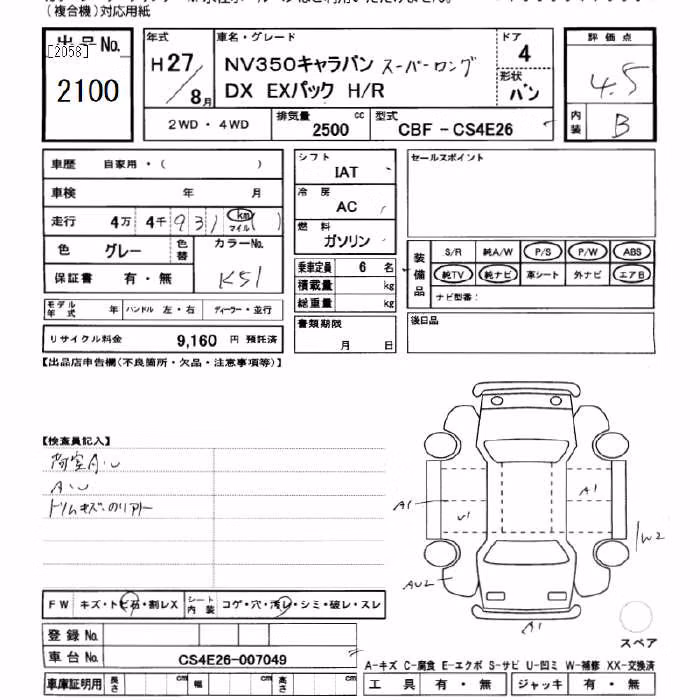 (複合機)対応用紙
出品No.
[2058]
2100
年式
H27/8月
車名・グレード
NV350キャラバン スーパーロング
DX EXパック H/R
ドア
4
形状
バン
評価点
4.5
内装
B
2WD・4WD
排気量
2500 cc
型式
CBF-CS4E26
車歴 自家用・( )
車検 年 月
走行 4万 4千 931 km マイル ( )
色 グレー 色替 カラーNo. K51
保証書 有・無
モデル年式 年 ハンドル 左・右 ディーラー・並行
リサイクル料金 9,160 円 預託済
シフト
IAT
冷房
AC
燃料
ガソリン
乗車定員 6 名
積載量 kg
総重量 kg
書類期限
月 日
セールスポイント
装備品
S/R 純A/W P/S P/W ABS
純TV 純ナビ 革シート 外ナビ エアB
ナビ型番:
後日品
【出品店申告欄(不良箇所・欠品・注意事項等)】
【検査員記入】
荷室A.U
A.U
ドリムキズ.のリアリー
A1
U1
A1
W2
AU2
A1
FW キズ・トビ石・割レX シート内装 コゲ・穴・汚レ・シミ・破レ・スレ
登録No.
車台No. CS4E26-007049
車庫証明用 長さ cm 幅 cm 高さ cm
スペア
A-キズ C-腐食 E-エクボ S-サビ U-凹ミ W-補修 XX-交換済
工具 有・無 ジャッキ 有・無